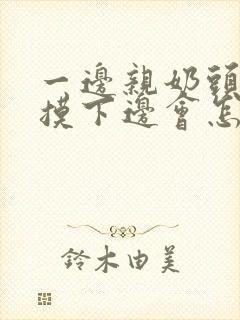 一邊親奶頭
摸下邊會怎
鈴木由美